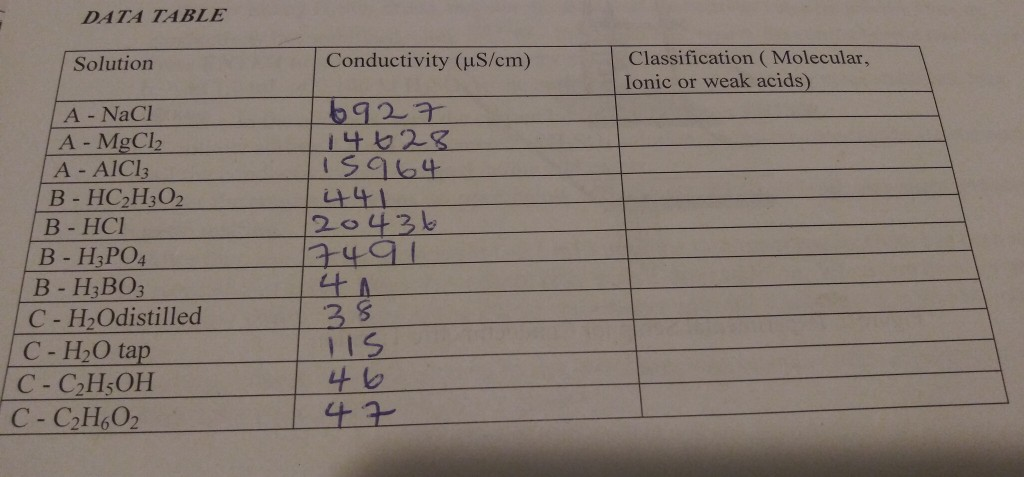 DATA TABLE
Solution Conductivity (µS/cm) Classification ( Molecular,
Ionic or weak acids)
A - NaCl 6927
A - MgCl₂ 14628
A - AlCl₃ 15964
B - HC₂H₃O₂ 441
B - HCl 20436
B - H₃PO₄ 7491
B - H₃BO₃
C - H₂Odistilled 38
C - H₂O tap 115
C - C₂H₅OH 46
C - C₂H₆O₂ 47